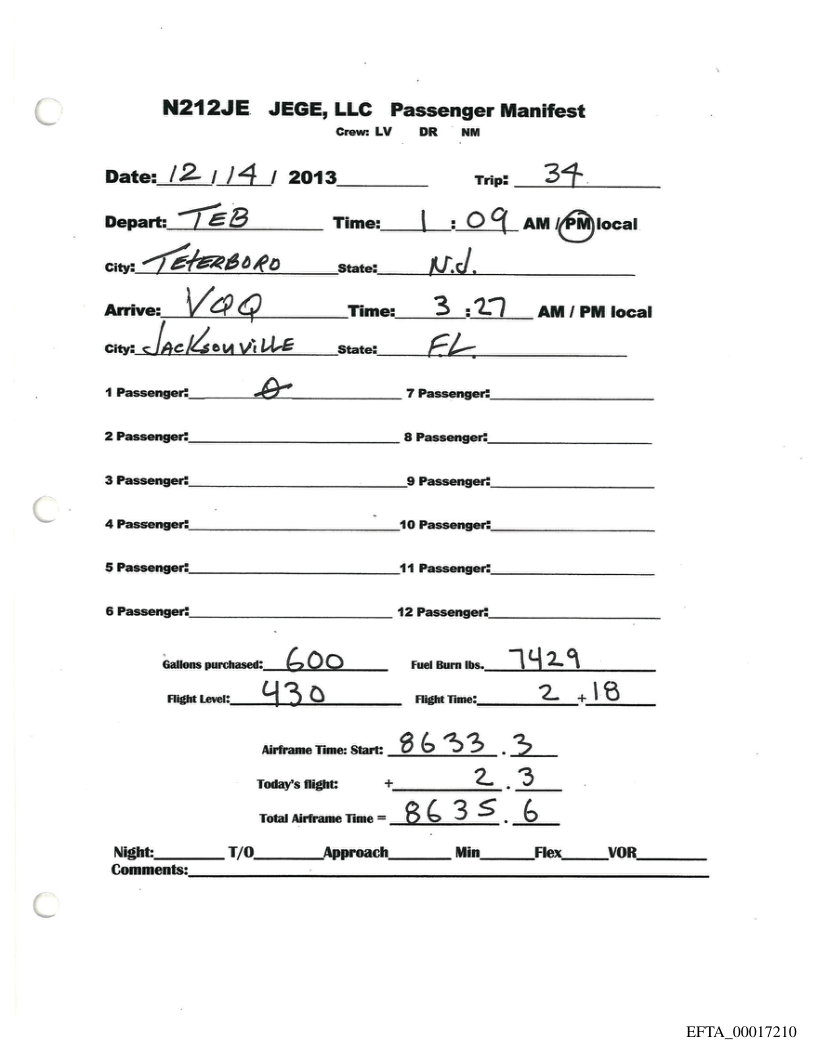 N212JE JEGE, LLC Passenger Manifest
Crew: LV DR NM
Date: 12 / 14 / 2013 Trip: 34
Depart: TEB Time: 1 : 09 AM / PM local
City: TETERBORO State: N.J.
Arrive: VQQ Time: 3 : 27 AM / PM local
City: JACKSONVILLE State: FL.
1 Passenger: 0 7 Passenger:
2 Passenger: 8 Passenger:
3 Passenger: 9 Passenger:
4 Passenger: 10 Passenger:
5 Passenger: 11 Passenger:
6 Passenger: 12 Passenger:
Gallons purchased: 600 Fuel Burn lbs. 7429
Flight Level: 430 Flight Time: 2 + 18
Airframe Time: Start: 8633 . 3
Today's flight: + 2 . 3
Total Airframe Time = 8635 . 6
Night: T/O Approach Min Flex VOR
Comments:
EFTA_00017210